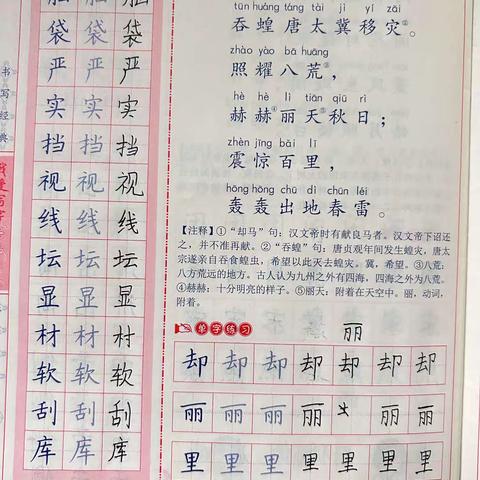 书写经典
胆 胆 胆
袋 袋 袋
严 严 严
实 实 实
挡 挡 挡
视 视 视
线 线 线
坛 坛 坛
显 显 显
材 材 村
软 软 软
刮 刮 刮
库 库 库
tūn huáng táng tài jì yí zāi
吞蝗唐太冀移灾②。
zhào yào bā huāng
照耀八荒③,
hè hè lì tiān qiū rì
赫赫④丽天⑤秋日;
zhèn jīng bǎi lǐ
震惊百里,
hōng hōng chū dì chūn léi
轰轰出地春雷。
【注释】①“却马”句:汉文帝时有献良马者。汉文帝下诏还
之,并不准再献。②“吞蝗”句:唐贞观年间发生蝗灾,唐太
宗遂亲自吞食蝗虫,希望以此灭去蝗灾。冀,希望。③八荒:
八方荒远的地方。古人认为九州之外有四海,四海之外为八荒。
④赫赫:十分明亮的样子。⑤丽天:附着在天空中。丽,动词,
附着。
单字练习
丽
却 却 却 却 却 却 却
丽 丽 丽 丽 丽 丽
里 里 里 里 里 里 里